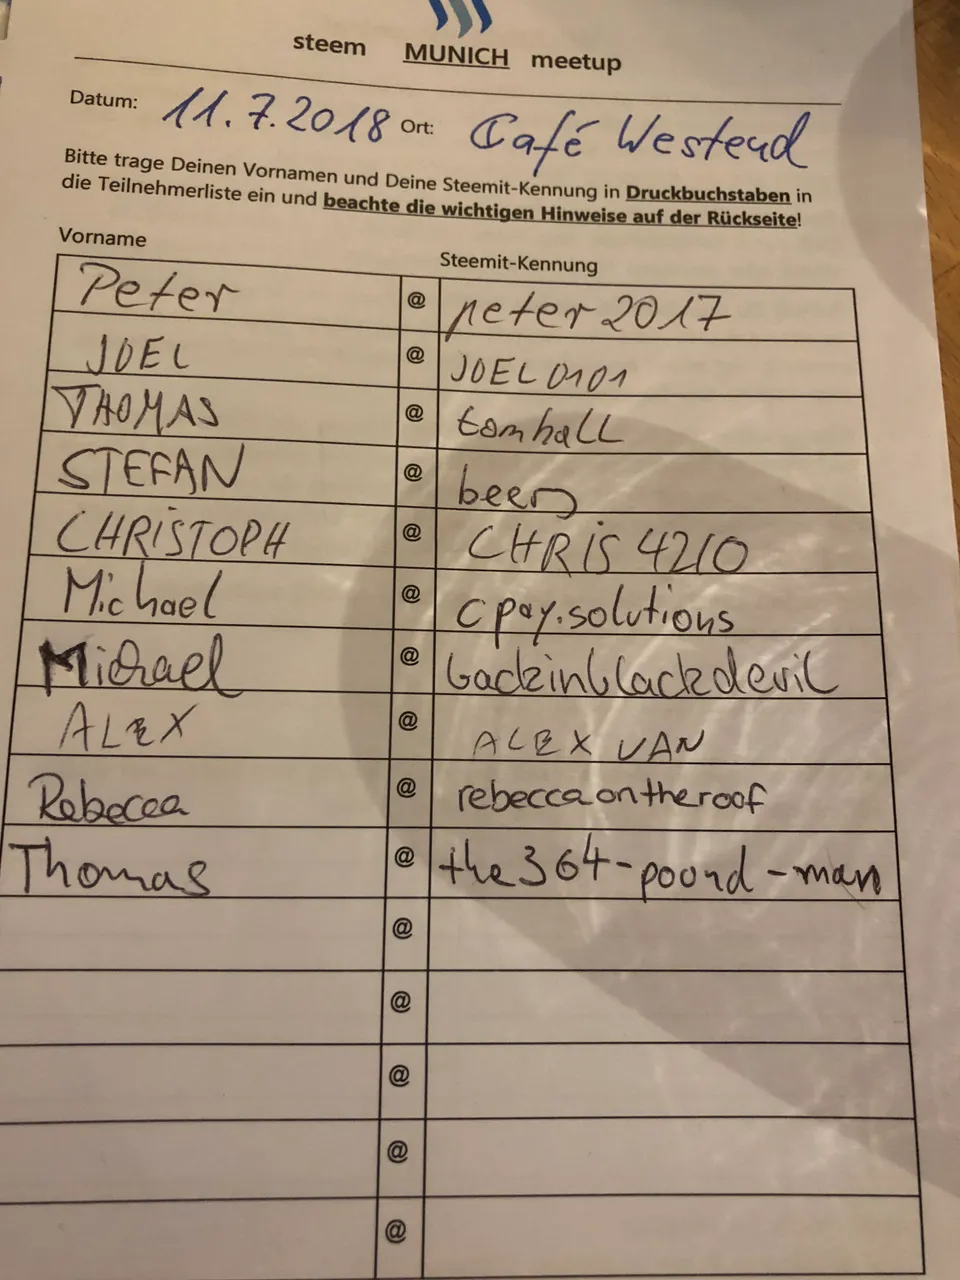 steem MUNICH meetup
Datum: 11.7.2018 Ort: Café Westend
Bitte trage Deinen Vornamen und Deine Steemit-Kennung in Druckbuchstaben in
die Teilnehmerliste ein und beachte die wichtigen Hinweise auf der Rückseite!
Vorname Steemit-Kennung
Peter @ peter2017
JOEL @ JOEL0101
THOMAS @ tomhall
STEFAN @ beers
CHRISTOPH @ CHRIS4210
Michael @ cpay.solutions
Michael @ backinblackdevil
ALEX @ ALEXVAN
Rebecca @ rebeccaontheroof
Thomas @ the364-pound-man
@
@
@
@
@